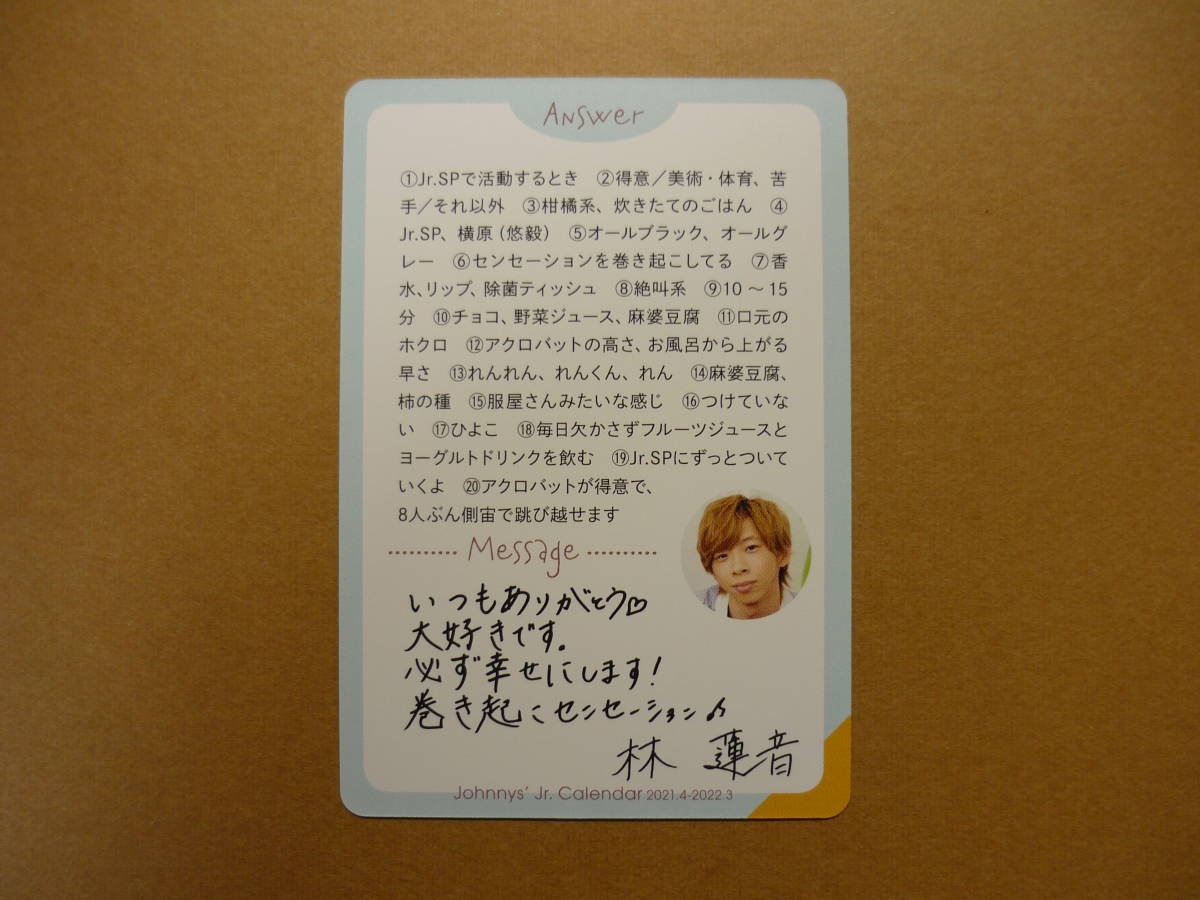 Answer
①Jr.SPで活動するとき　②得意／美術・体育、苦
手／それ以外　③柑橘系、炊きたてのごはん　④
Jr.SP、横原（悠毅）　⑤オールブラック、オールグ
レー　⑥センセーションを巻き起こしてる　⑦香
水、リップ、除菌ティッシュ　⑧絶叫系　⑨10～15
分　⑩チョコ、野菜ジュース、麻婆豆腐　⑪口元の
ホクロ　⑫アクロバットの高さ、お風呂から上がる
早さ　⑬れんれん、れんくん、れん　⑭麻婆豆腐、
柿の種　⑮服屋さんみたいな感じ　⑯つけていな
い　⑰ひよこ　⑱毎日欠かさずフルーツジュースと
ヨーグルトドリンクを飲む　⑲Jr.SPにずっとついて
いくよ　⑳アクロバットが得意で、
8人ぶん側宙で跳び越せます
Message
いつもありがとう♡
大好きです。
必ず幸せにします!
巻き起こセンセーション♪
林 蓮音
Johnnys' Jr. Calendar 2021.4-2022.3